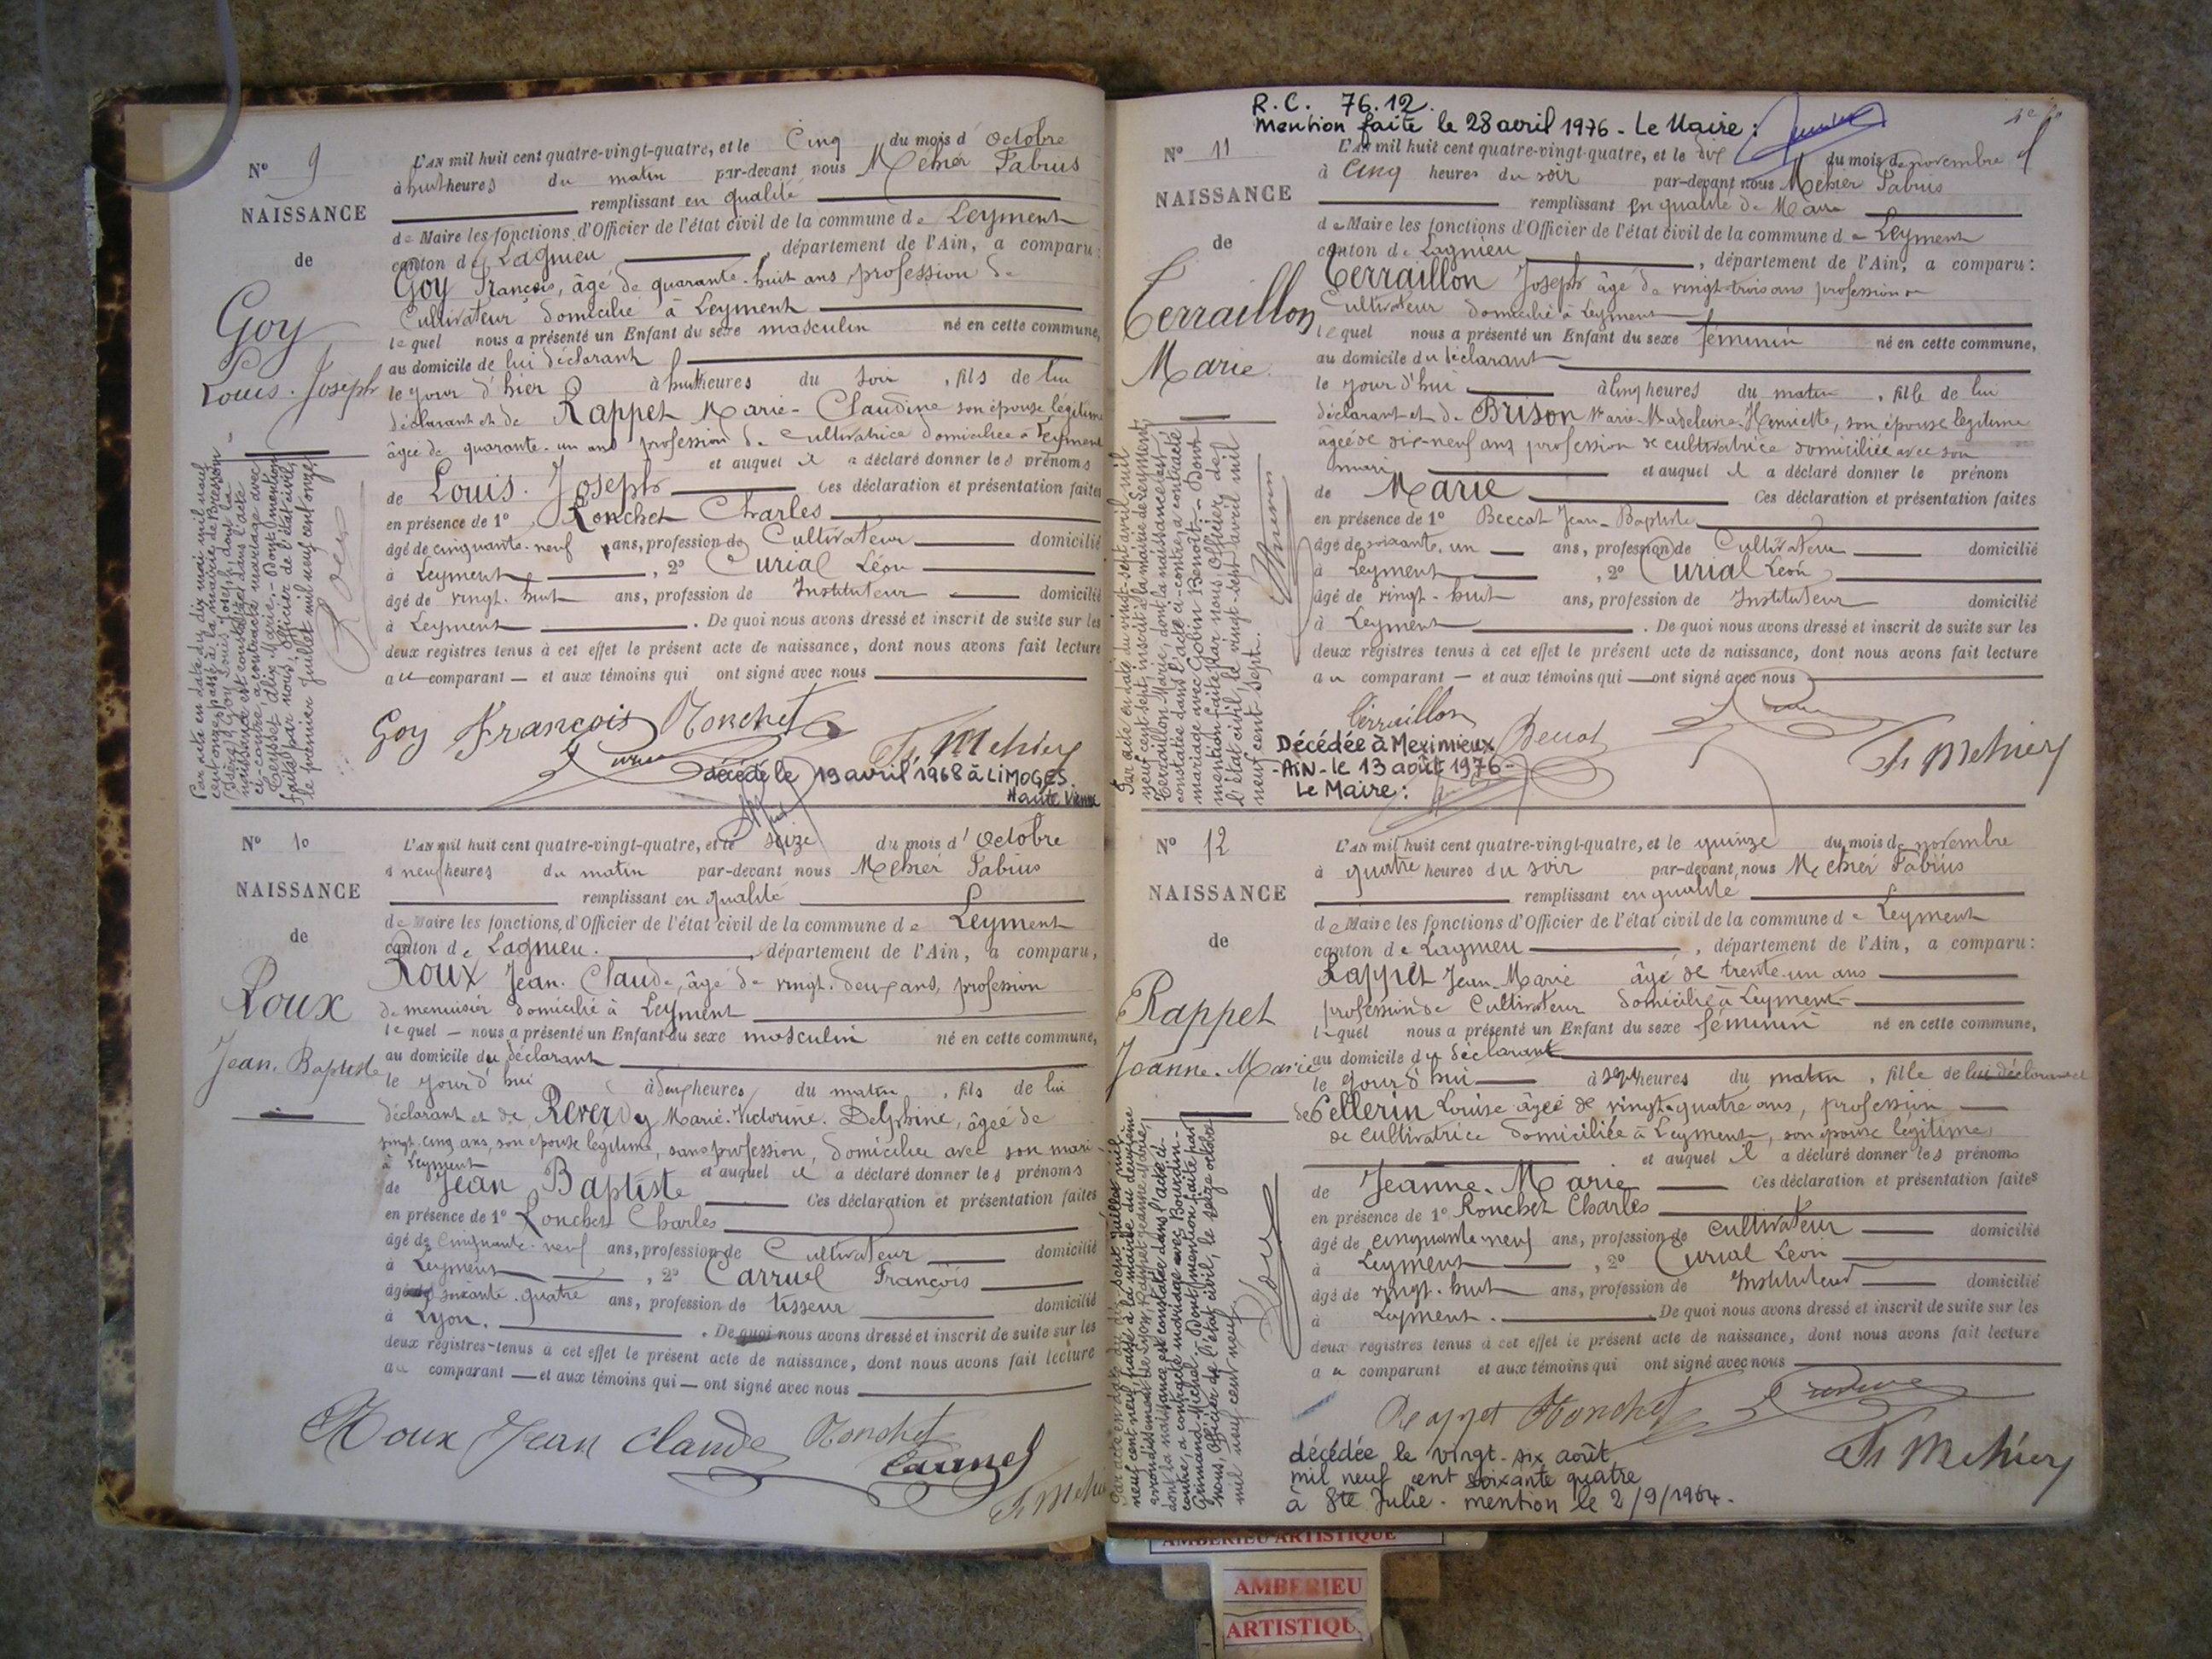 N° 9
NAISSANCE
de
Goy
Louis-Joseph
L'AN mil huit cent quatre-vingt-quatre, et le Cinq du mois d' Octobre
à huit heures du matin par-devant nous Mehier Fabius
remplissant en qualité
de Maire les fonctions d'Officier de l'état civil de la commune de Leyment
canton de Lagnieu, département de l'Ain, a comparu:
Goy François, âgé de quarante-huit ans, profession de
Cultivateur domicilié à Leyment
lequel nous a présenté un Enfant du sexe masculin né en cette commune,
au domicile de lui déclarant
le jour d'hier à huit heures du soir, fils de lui
déclarant et de Rappet Marie-Claudine son épouse légitime
âgée de quarante-un ans profession de cultivatrice domiciliée à Leyment
et auquel il a déclaré donner les prénoms
de Louis-Joseph Ces déclaration et présentation faites
en présence de 1° Ronchet Charles
âgé de cinquante-neuf ans, profession de Cultivateur domicilié
à Leyment, 2° Curial Léon
âgé de vingt-huit ans, profession de Instituteur domicilié
à Leyment. De quoi nous avons dressé et inscrit de suite sur les
deux registres tenus à cet effet le présent acte de naissance, dont nous avons fait lecture
au comparant et aux témoins qui ont signé avec nous
Par acte en date du dix mai mil neuf
cent onze passé à la mairie de Bressom
(Isère) Goy Louis Joseph, dont la
naissance est constatée dans l'acte
ci-contre, a contracté mariage avec
Alix Marie. Dont mention
faite par nous, officier de l'état civil,
le premier Juillet mil neuf cent onze
Goy François Ronchet
F. Mehier
décédé le 19 avril 1968 à LIMOGES
Haute Vienne
N° 10
NAISSANCE
de
Roux
Jean-Baptiste
L'AN mil huit cent quatre-vingt-quatre, et le seize du mois d' Octobre
à neuf heures du matin par-devant nous Mehier Fabius
remplissant en qualité
de Maire les fonctions d'Officier de l'état civil de la commune de Leyment
canton de Lagnieu, département de l'Ain, a comparu,
Roux Jean-Claude, âgé de vingt-deux ans, profession
de menuisier domicilié à Leyment
lequel nous a présenté un Enfant du sexe masculin né en cette commune,
au domicile du déclarant
le jour d'hui à deux heures du matin, fils de lui
déclarant et de Reverdy Marie-Victorine-Delphine, âgée de
vingt-cinq ans, son épouse légitime, sans profession, domiciliée avec son mari
à Leyment et auquel il a déclaré donner les prénoms
de Jean Baptiste Ces déclaration et présentation faites
en présence de 1° Ronchet Charles
âgé de Cinquante-neuf ans, profession de Cultivateur domicilié
à Leyment, 2° Carruel François
âgé de soixante-quatre ans, profession de tisseur domicilié
à Lyon. De quoi nous avons dressé et inscrit de suite sur les
deux registres tenus à cet effet le présent acte de naissance, dont nous avons fait lecture
au comparant et aux témoins qui ont signé avec nous
Roux Jean Claude Ronchet
Carruel
F. Mehier
R.C. 76.12.
Mention faite le 28 avril 1976 - Le Maire:
N° 11
NAISSANCE
de
Terraillon
Marie
L'AN mil huit cent quatre-vingt-quatre, et le dix du mois de novembre
à Cinq heures du soir par-devant nous Mehier Fabius
remplissant en qualité de Maire
de Maire les fonctions d'Officier de l'état civil de la commune de Leyment
canton de Lagnieu, département de l'Ain, a comparu:
Terraillon Joseph âgé de vingt-trois ans profession de
Cultivateur domicilié à Leyment
lequel nous a présenté un Enfant du sexe féminin né en cette commune,
au domicile du déclarant
le jour d'hui à cinq heures du matin, fille de lui
déclarant et de Brison Marie-Madeleine-Henriette, son épouse légitime
âgée de dix-neuf ans profession de cultivatrice domiciliée avec son
mari et auquel il a déclaré donner le prénom
de Marie Ces déclaration et présentation faites
en présence de 1° Beccat Jean-Baptiste
âgé de soixante-un ans, profession de Cultivateur domicilié
à Leyment, 2° Curial Léon
âgé de vingt-huit ans, profession de Instituteur domicilié
à Leyment. De quoi nous avons dressé et inscrit de suite sur les
deux registres tenus à cet effet le présent acte de naissance, dont nous avons fait lecture
au comparant et aux témoins qui ont signé avec nous
Par acte en date du vingt-sept avril mil
neuf cent sept, inscrit à la mairie de Leyment,
Terraillon Marie, dont la naissance est
constatée dans l'acte ci-contre, a contracté
mariage avec Gobin Benoît. Dont
mention faite par nous Officier de
l'état civil, le vingt-sept avril mil
neuf cent sept.
Terraillon Beccat
F. Mehier
Décédée à Meximieux
-AIN- le 13 août 1976-
Le Maire:
N° 12
NAISSANCE
de
Rappet
Jeanne-Marie
L'AN mil huit cent quatre-vingt-quatre, et le quinze du mois de novembre
à quatre heures du soir par-devant nous Mehier Fabius
remplissant en qualité
de Maire les fonctions d'Officier de l'état civil de la commune de Leyment
canton de Lagnieu, département de l'Ain, a comparu:
Rappet Jean-Marie âgé de trente-un ans
profession de Cultivateur domicilié à Leyment
lequel nous a présenté un Enfant du sexe féminin né en cette commune,
au domicile du déclarant
le jour d'hui à sept heures du matin, fille de lui déclarant et
de Pellerin Louise âgée de vingt-quatre ans, profession
de cultivatrice domiciliée à Leyment, son épouse légitime,
et auquel il a déclaré donner les prénoms
de Jeanne-Marie Ces déclaration et présentation faites
en présence de 1° Ronchet Charles
âgé de cinquante neuf ans, profession de cultivateur domicilié
à Leyment, 2° Curial Léon
âgé de vingt-huit ans, profession de Instituteur domicilié
à Leyment. De quoi nous avons dressé et inscrit de suite sur les
deux registres tenus à cet effet le présent acte de naissance, dont nous avons fait lecture
au comparant et aux témoins qui ont signé avec nous
Par acte en date du dix sept juillet mil
neuf cent neuf passé à la mairie du deuxième
arrondissement de Lyon, Rappet Jeanne Marie,
dont la naissance est constatée dans l'acte ci-
contre, a contracté mariage avec Bourdin
Armand Michel. Dont mention faite par
nous, officier de l'état civil, le seize octobre
mil neuf cent neuf.
Rappet Ronchet
F. Mehier
décédée le vingt-six août
mil neuf cent soixante quatre
à Ste Julie. mention le 2/9/1964.
AMBERIEU ARTISTIQUE
AMBERIEU
ARTISTIQU